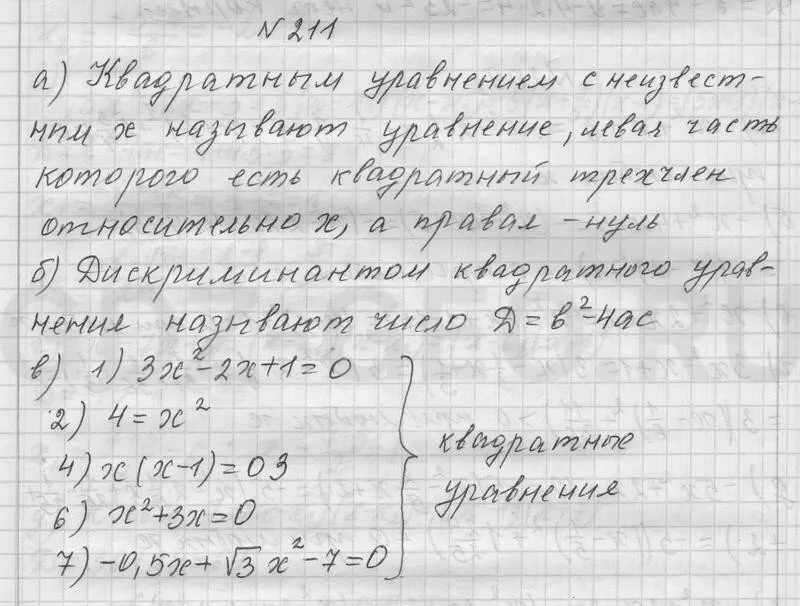 № 211
а) Квадратным уравнением с неизвест-
ным х называют уравнение, левая часть
которого есть квадратный трехчлен
относительно х, а правая - нуль
б) Дискриминантом квадратного урав-
нения называют число Д = в² - 4ас
в) 1) 3х² - 2х + 1 = 0
2) 4 = х²
4) х (х - 1) = 03
6) х² + 3х = 0
7) -0,5х + √3 х² - 7 = 0
квадратные
уравнения